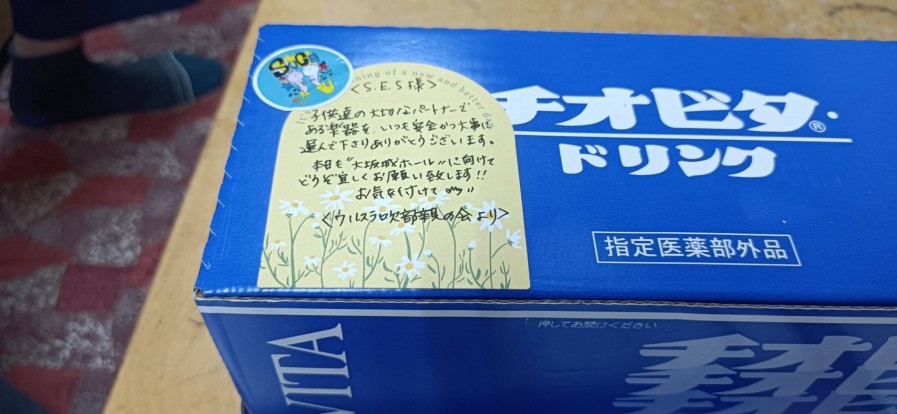 <S.E.S 様>
子供達の大切なパートナーで
ある楽器を、いつも安全かつ大事に
運んで下さりありがとうございます。
本日も"大阪城ホール"に向けて
どうぞ宜しくお願い致します!!
お気を付けて
<ウルスラ吹部親の会より>
チオビタ®
ドリンク
指定医薬部外品
押してお開けください
VITA
チオビ
チオ